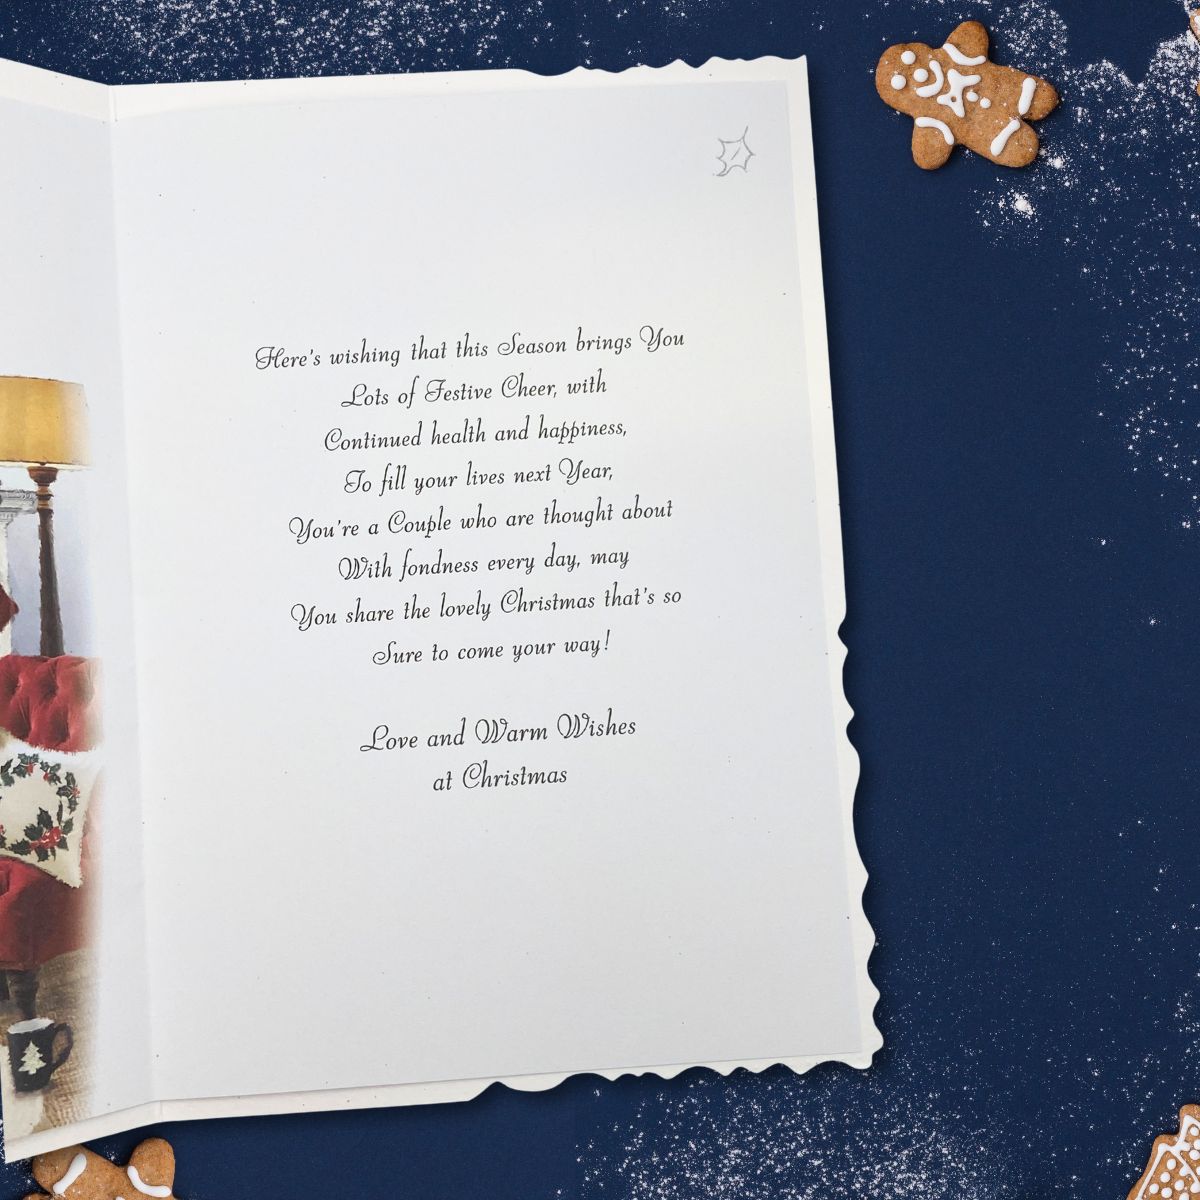 Here's wishing that this Season brings You
Lots of Festive Cheer, with
Continued health and happiness,
To fill your lives next Year,
You're a Couple who are thought about
With fondness every day, may
You share the lovely Christmas that's so
Sure to come your way!
Love and Warm Wishes
at Christmas